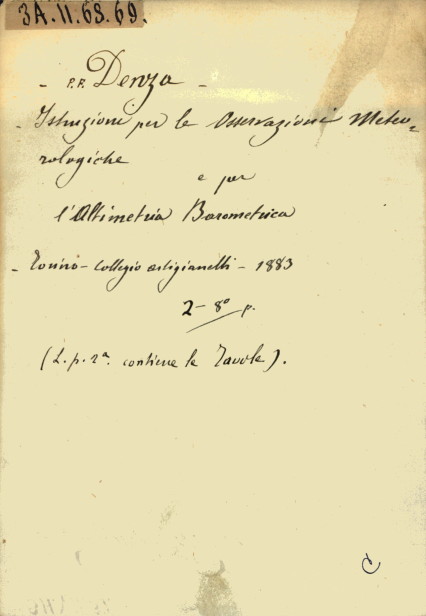 3A.II.68.69.
- P.F. Denza -
- Istruzione per le Osservazioni Meteo=
rologiche
e per
l'Altimetria Barometrica
- Torino - Collegio artigianelli - 1883
2 - 8° p.
(L. p. 2a. contiene le Tavole).
C